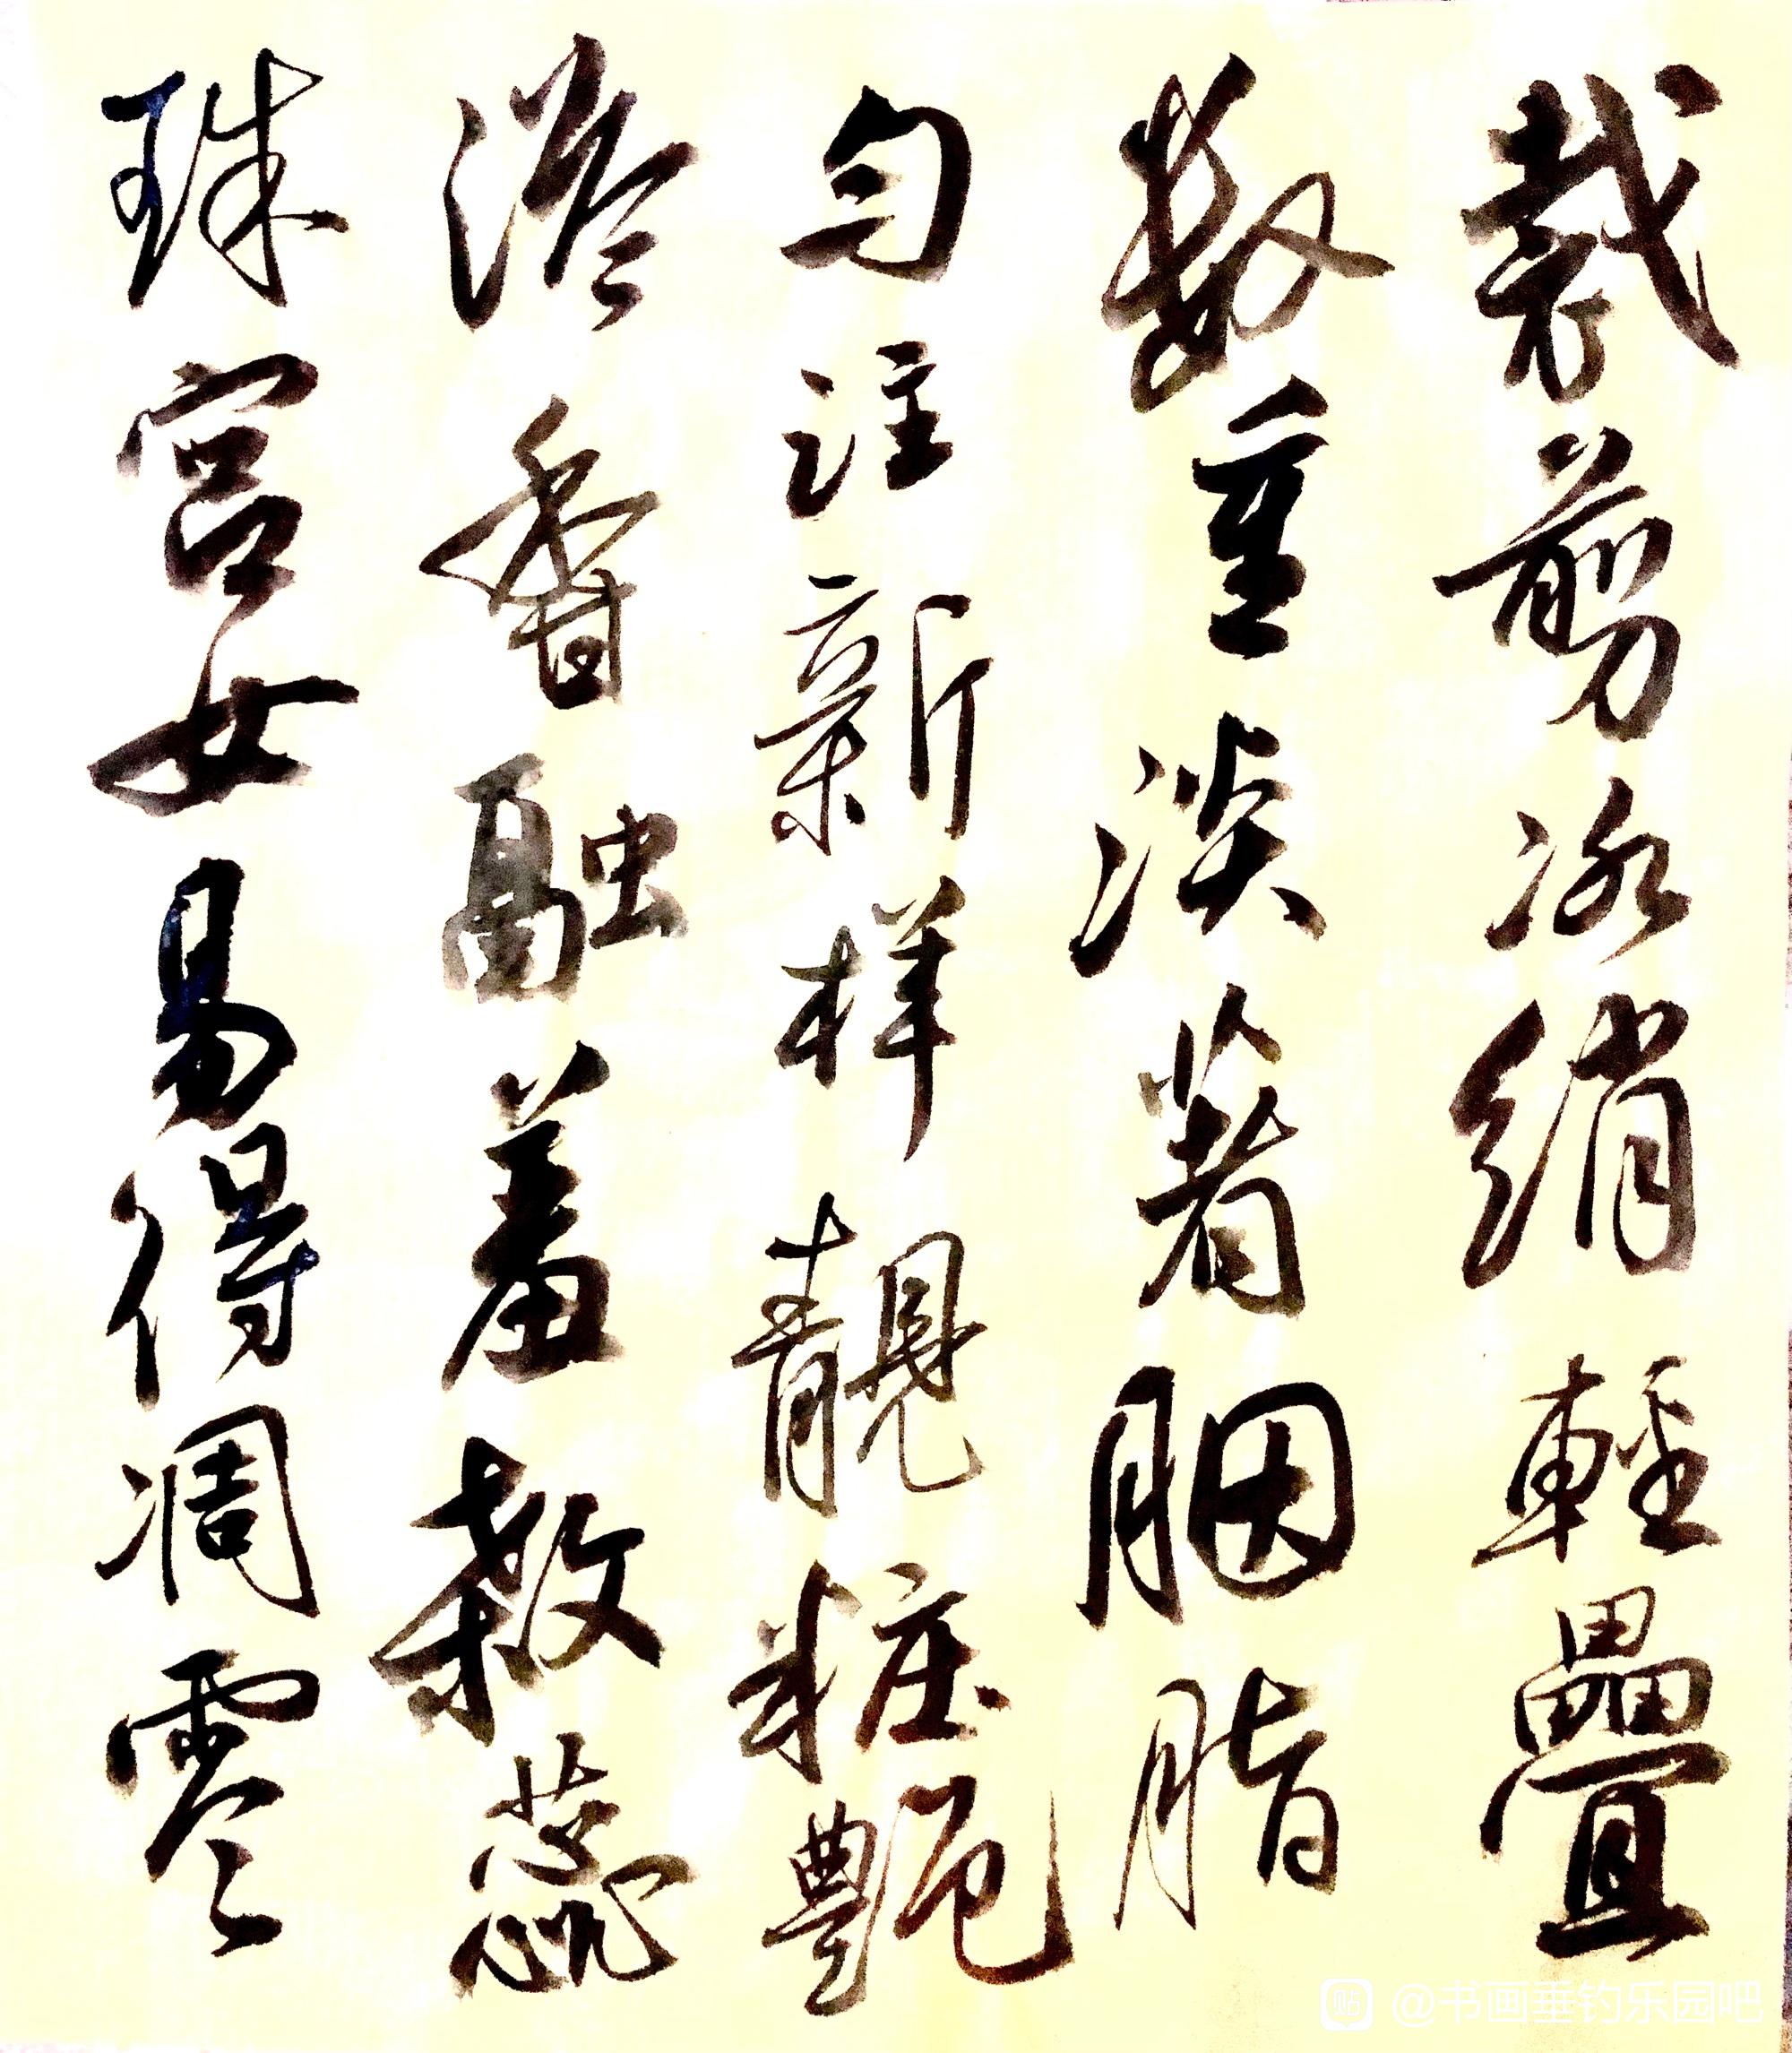 裁剪冰綃輕疊
數重淡著胭脂
勻注新样靚粧艷
溢香融羞殺蕊
珠宮女易得凋零
@书画垂钓乐园吧